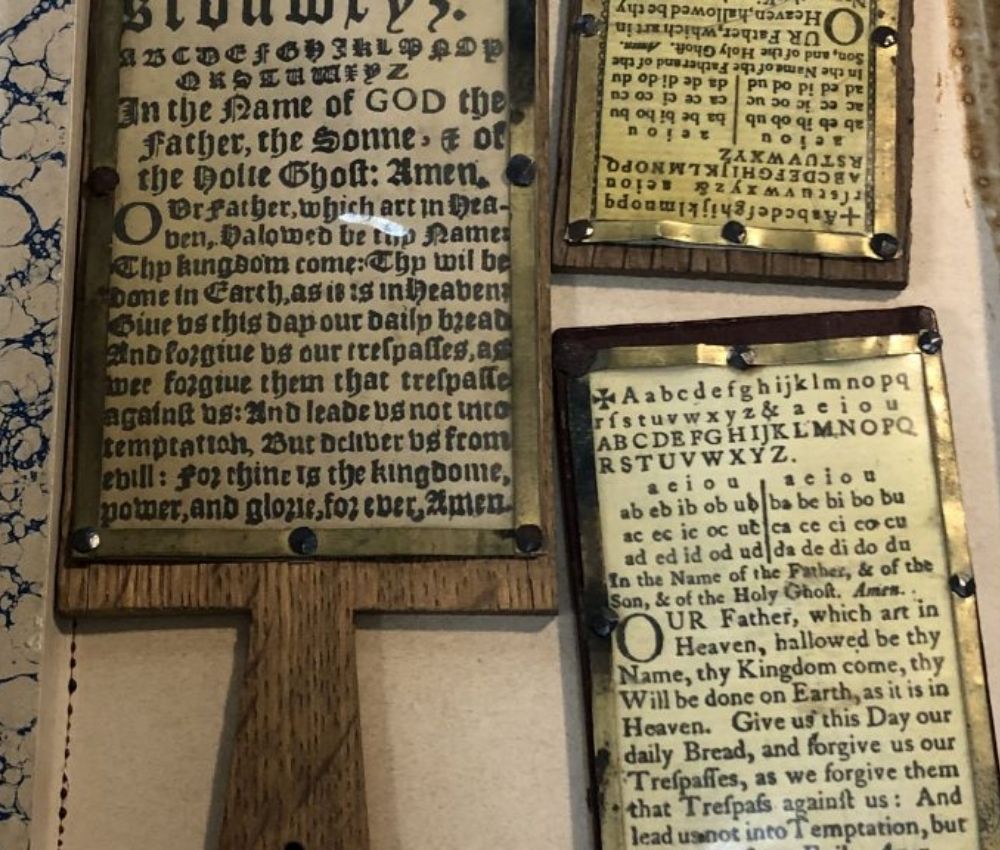 stvuwxyz.
ABCDEFGHIKLMNOP
QRSTUWXYZ
In the Name of GOD the
Father, the Sonne, & of
the Holie Ghoſt: Amen.
OUr Father, which art in Hea-
ven, Halowed be thy Name:
Thy kingdom come: Thy wil be
done in Earth, as it is in Heaven:
Giue vs this day our daily bread
And forgiue vs our treſpaſſes, as
wee forgiue them that treſpaſſe
againſt vs: And leade vs not into
temptation, But deliver vs from
evill: For thine is the kingdome,
power, and glorie, for ever, Amen.
✠Aabcdefghijklmnopq
rſstuvwxyz& aeiou
ABCDEFGHIJKLMNOPQ
RSTUVWXYZ
a e i o u | a e i o u
ab eb ib ob ub | ba be bi bo bu
ac ec ic oc uc | ca ce ci co cu
ad ed id od ud | da de di do du
In the Name of the Father and of the
Son, and of the Holy Ghoſt. Amen.
OUR Father, which art in
Heaven, hallowed be thy
✠Aabcdefghijklmnopq
rſstuvwxyz& aeiou
ABCDEFGHIJKLMNOPQ
RSTUVWXYZ.
a e i o u | a e i o u
ab eb ib ob ub | ba be bi bo bu
ac ec ic oc uc | ca ce ci co cu
ad ed id od ud | da de di do du
In the Name of the Father, & of the
Son, & of the Holy Ghoſt. Amen.
OUR Father, which art in
Heaven, hallowed be thy
Name, thy Kingdom come, thy
Will be done on Earth, as it is in
Heaven. Give us this Day our
daily Bread, and forgive us our
Treſpaſſes, as we forgive them
that Treſpaſs againſt us: And
lead us not into Temptation, but